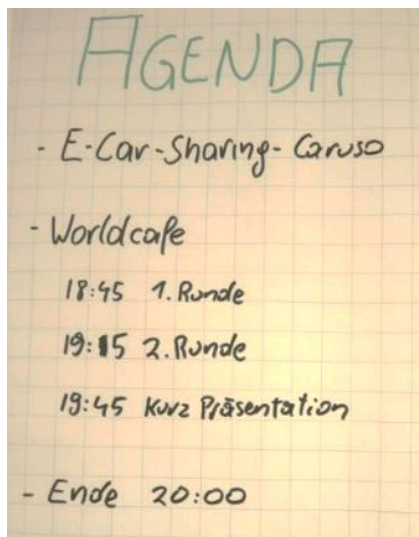 AGENDA
- E-Car-Sharing-Caruso
- Worldcafe
18:45 1. Runde
19:15 2. Runde
19:45 Kurz Präsentation
- Ende 20:00